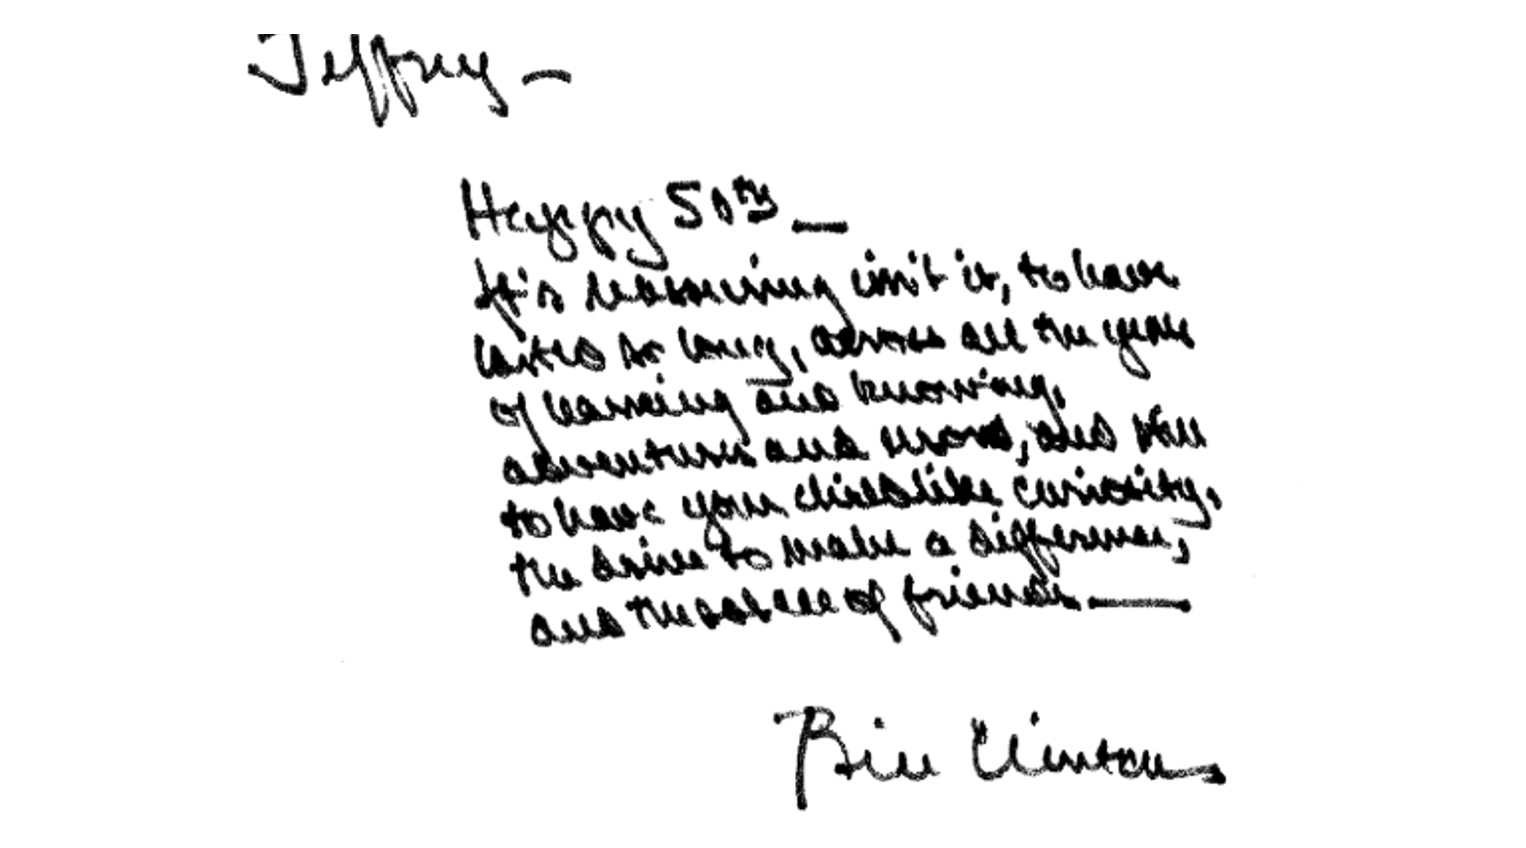 Jeffrey —
Happy 50th —
It's reassuring isn't it, to have
lasted so long, across all the years
of learning and knowing,
adventures and, and still
to have your childlike curiosity,
the drive to make a difference,
and the solace of friends —
Bill Clinton